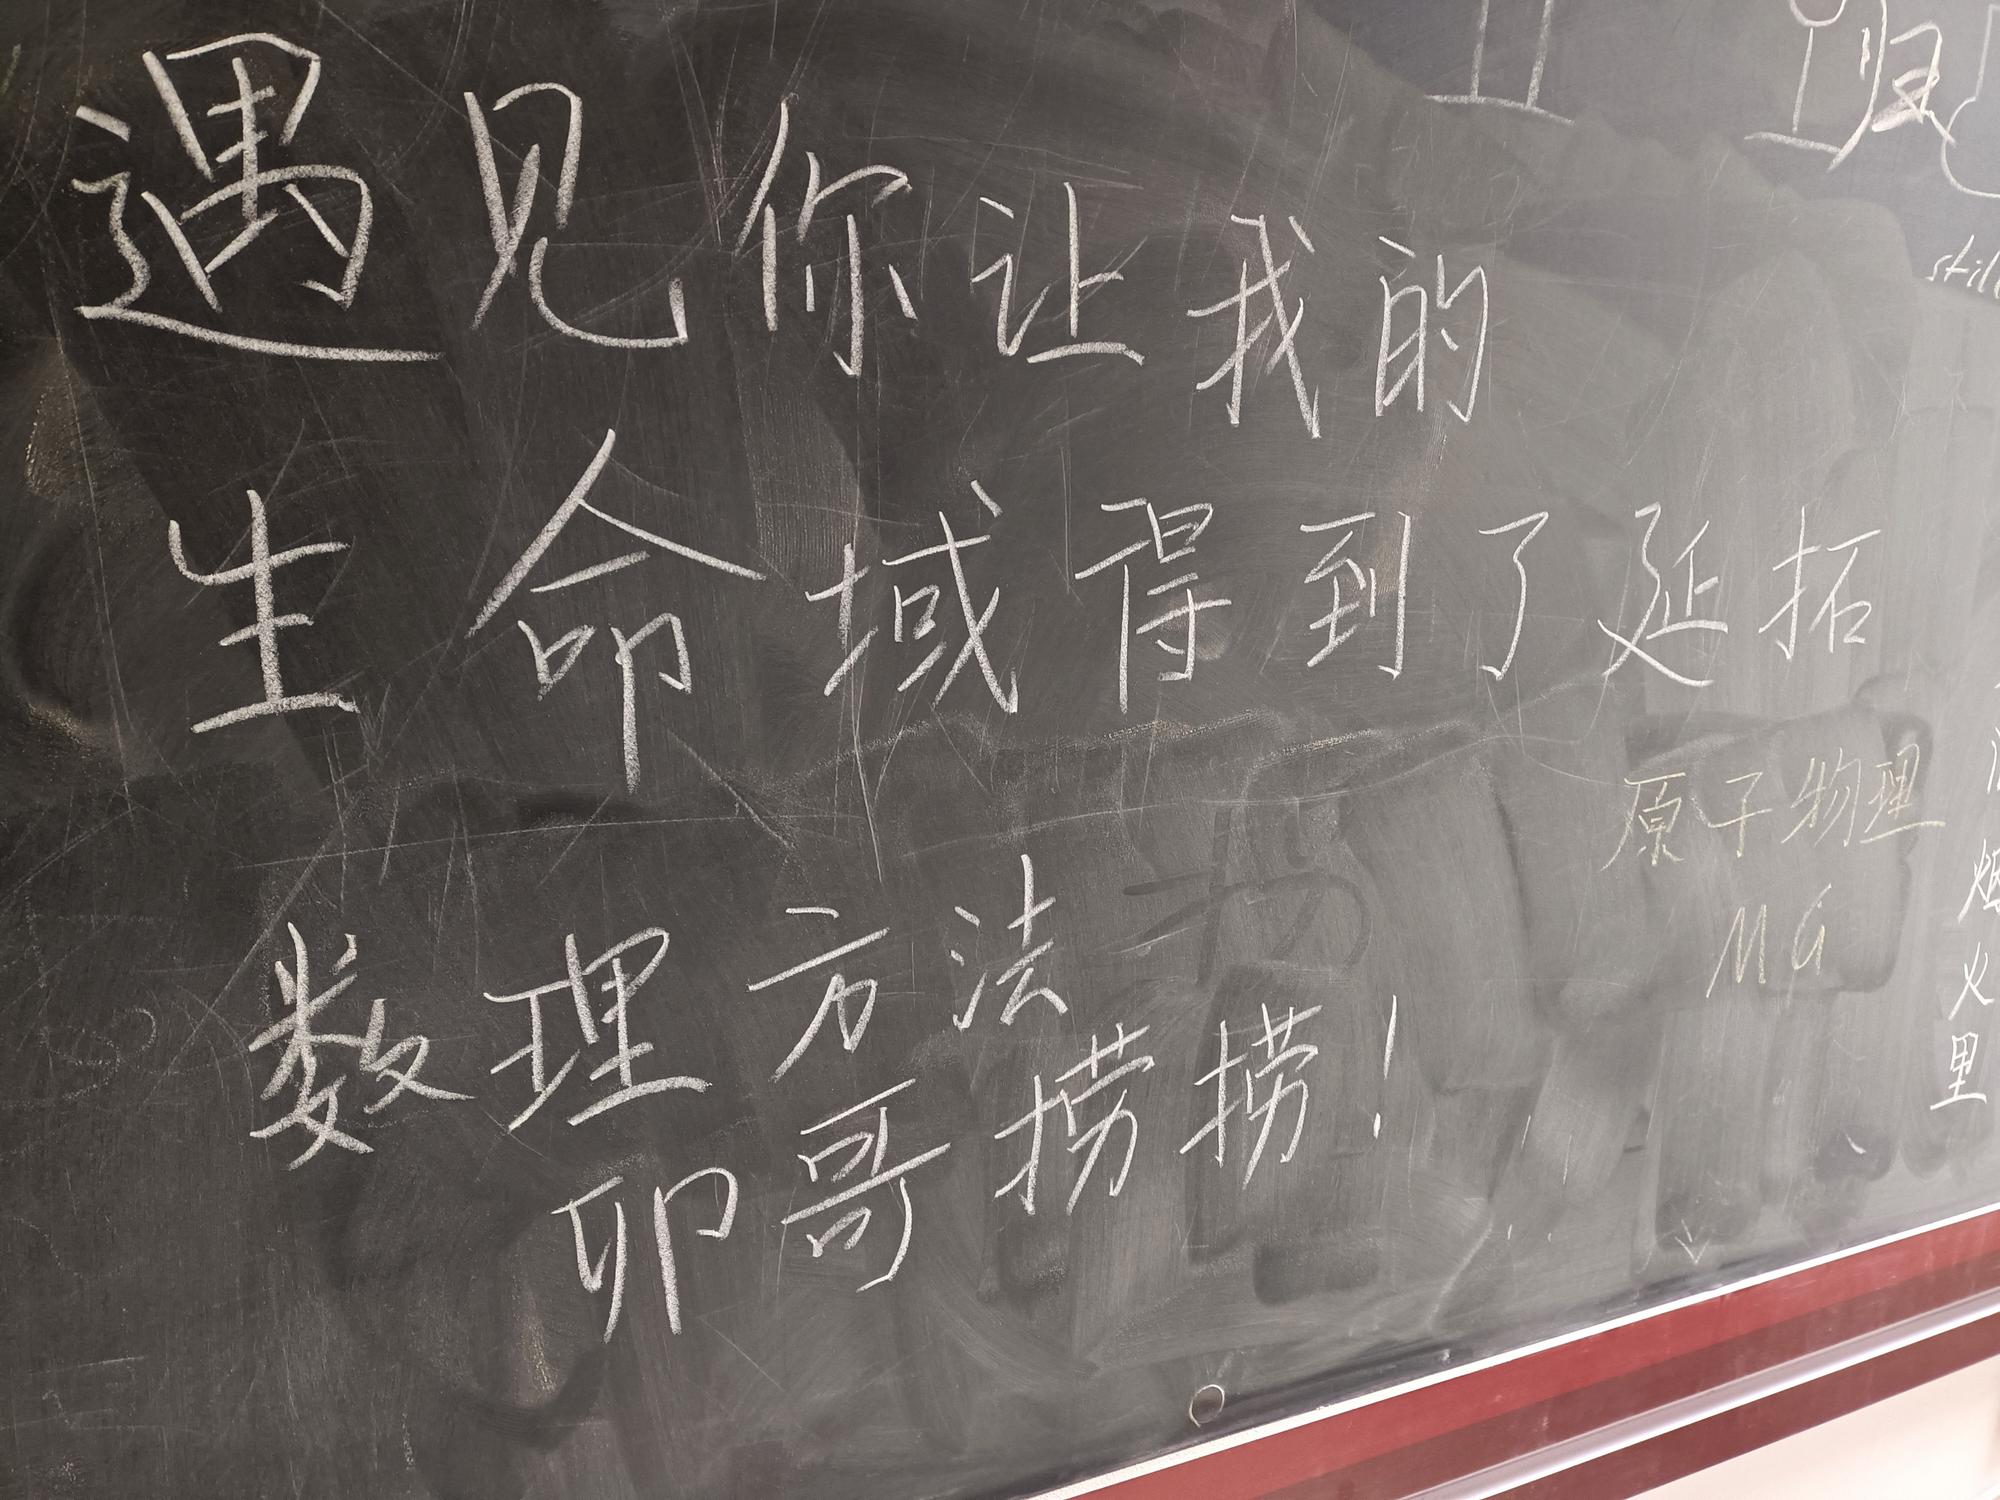 遇见你让我的
生命域得到了延拓
数理方法
卯哥捞捞!
原子物理
MG
still
烟火里